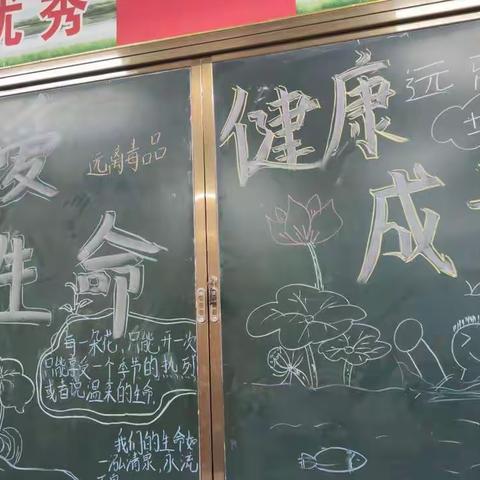 优秀
爱
生命
远离毒品
每一朵花,只能开一次
只能享受一个季节的热烈
或者说温柔的生命.
我们的生命如
一泓清泉,永流
健康
成
远